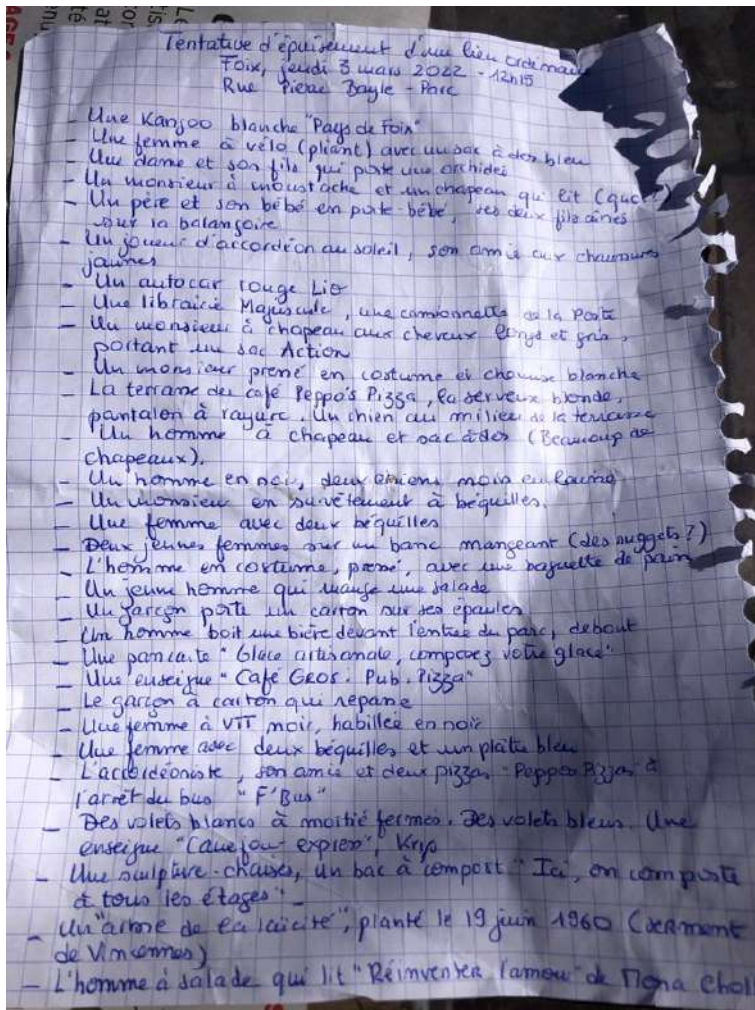 Tentative d'épuisement d'un lieu ordinaire
Foix, jeudi 3 mars 2022 - 12h15
Rue Pierre Bayle - Parc
- Une Kangoo blanche "Pays de Foix"
- Une femme à vélo (pliant) avec un sac à dos bleu
- Une dame et son fils qui porte une orchidée
- Un monsieur à moustache et un chapeau qui lit (quoi?)
- Un père et son bébé en porte-bébé, ses deux fils aînés
sur la balançoire
- Un joueur d'accordéon au soleil, son amie aux chaussures
jaunes
- Un autocar rouge Lio
- Une librairie Majuscule, une camionnette de la Poste
- Un monsieur à chapeau aux cheveux longs et gris,
portant un sac Action
- Un monsieur pressé en costume et chemise blanche
- La terrasse des café Peppo's Pizza, la serveuse blonde,
pantalon à rayure. Un chien au milieu de la terrasse
- Un homme à chapeau et sac à dos (Beaucoup de
chapeaux).
- Un homme en noir, deux chiens noirs en
- Un monsieur en survêtement à béquilles.
- Une femme avec deux béquilles
- Deux jeunes femmes sur un banc mangeant (des nuggets?)
- L'homme en costume, pressé, avec une baguette de pain
- Un jeune homme qui mange une salade
- Un garçon porte un carton sur ses épaules
- Un homme boit une bière devant l'entrée du parc, debout
- Une pancarte "Glace artisanale, composez votre glace"
- Une enseigne "Café Gros. Pub. Pizza"
- Le garçon à carton qui repasse
- Une femme à VTT noir, habillée en noir
- Une femme avec deux béquilles et un plâtre bleu
- L'accordéoniste, son amie et deux pizzas "Peppos Pizzas" à
l'arrêt du bus "F'Bus"
- Des volets blancs à moitié fermés. Des volets bleus. Une
enseigne
- Une sculpture-chaises, un bac à compost "Ici, on composte
à tous les étages" -
- Un "arbre de la laïcité", planté le 19 juin 1960 (serment
de Vincennes)
- L'homme à salade qui lit "Réinventer l'amour" de Mona Choll